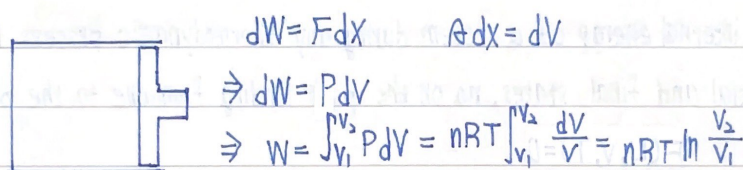 dW = Fdx    Adx = dV
⇒ dW = PdV
⇒ W = ∫_{V₁}^{V₂} PdV = nRT ∫_{V₁}^{V₂} dV/V = nRT ln V₂/V₁